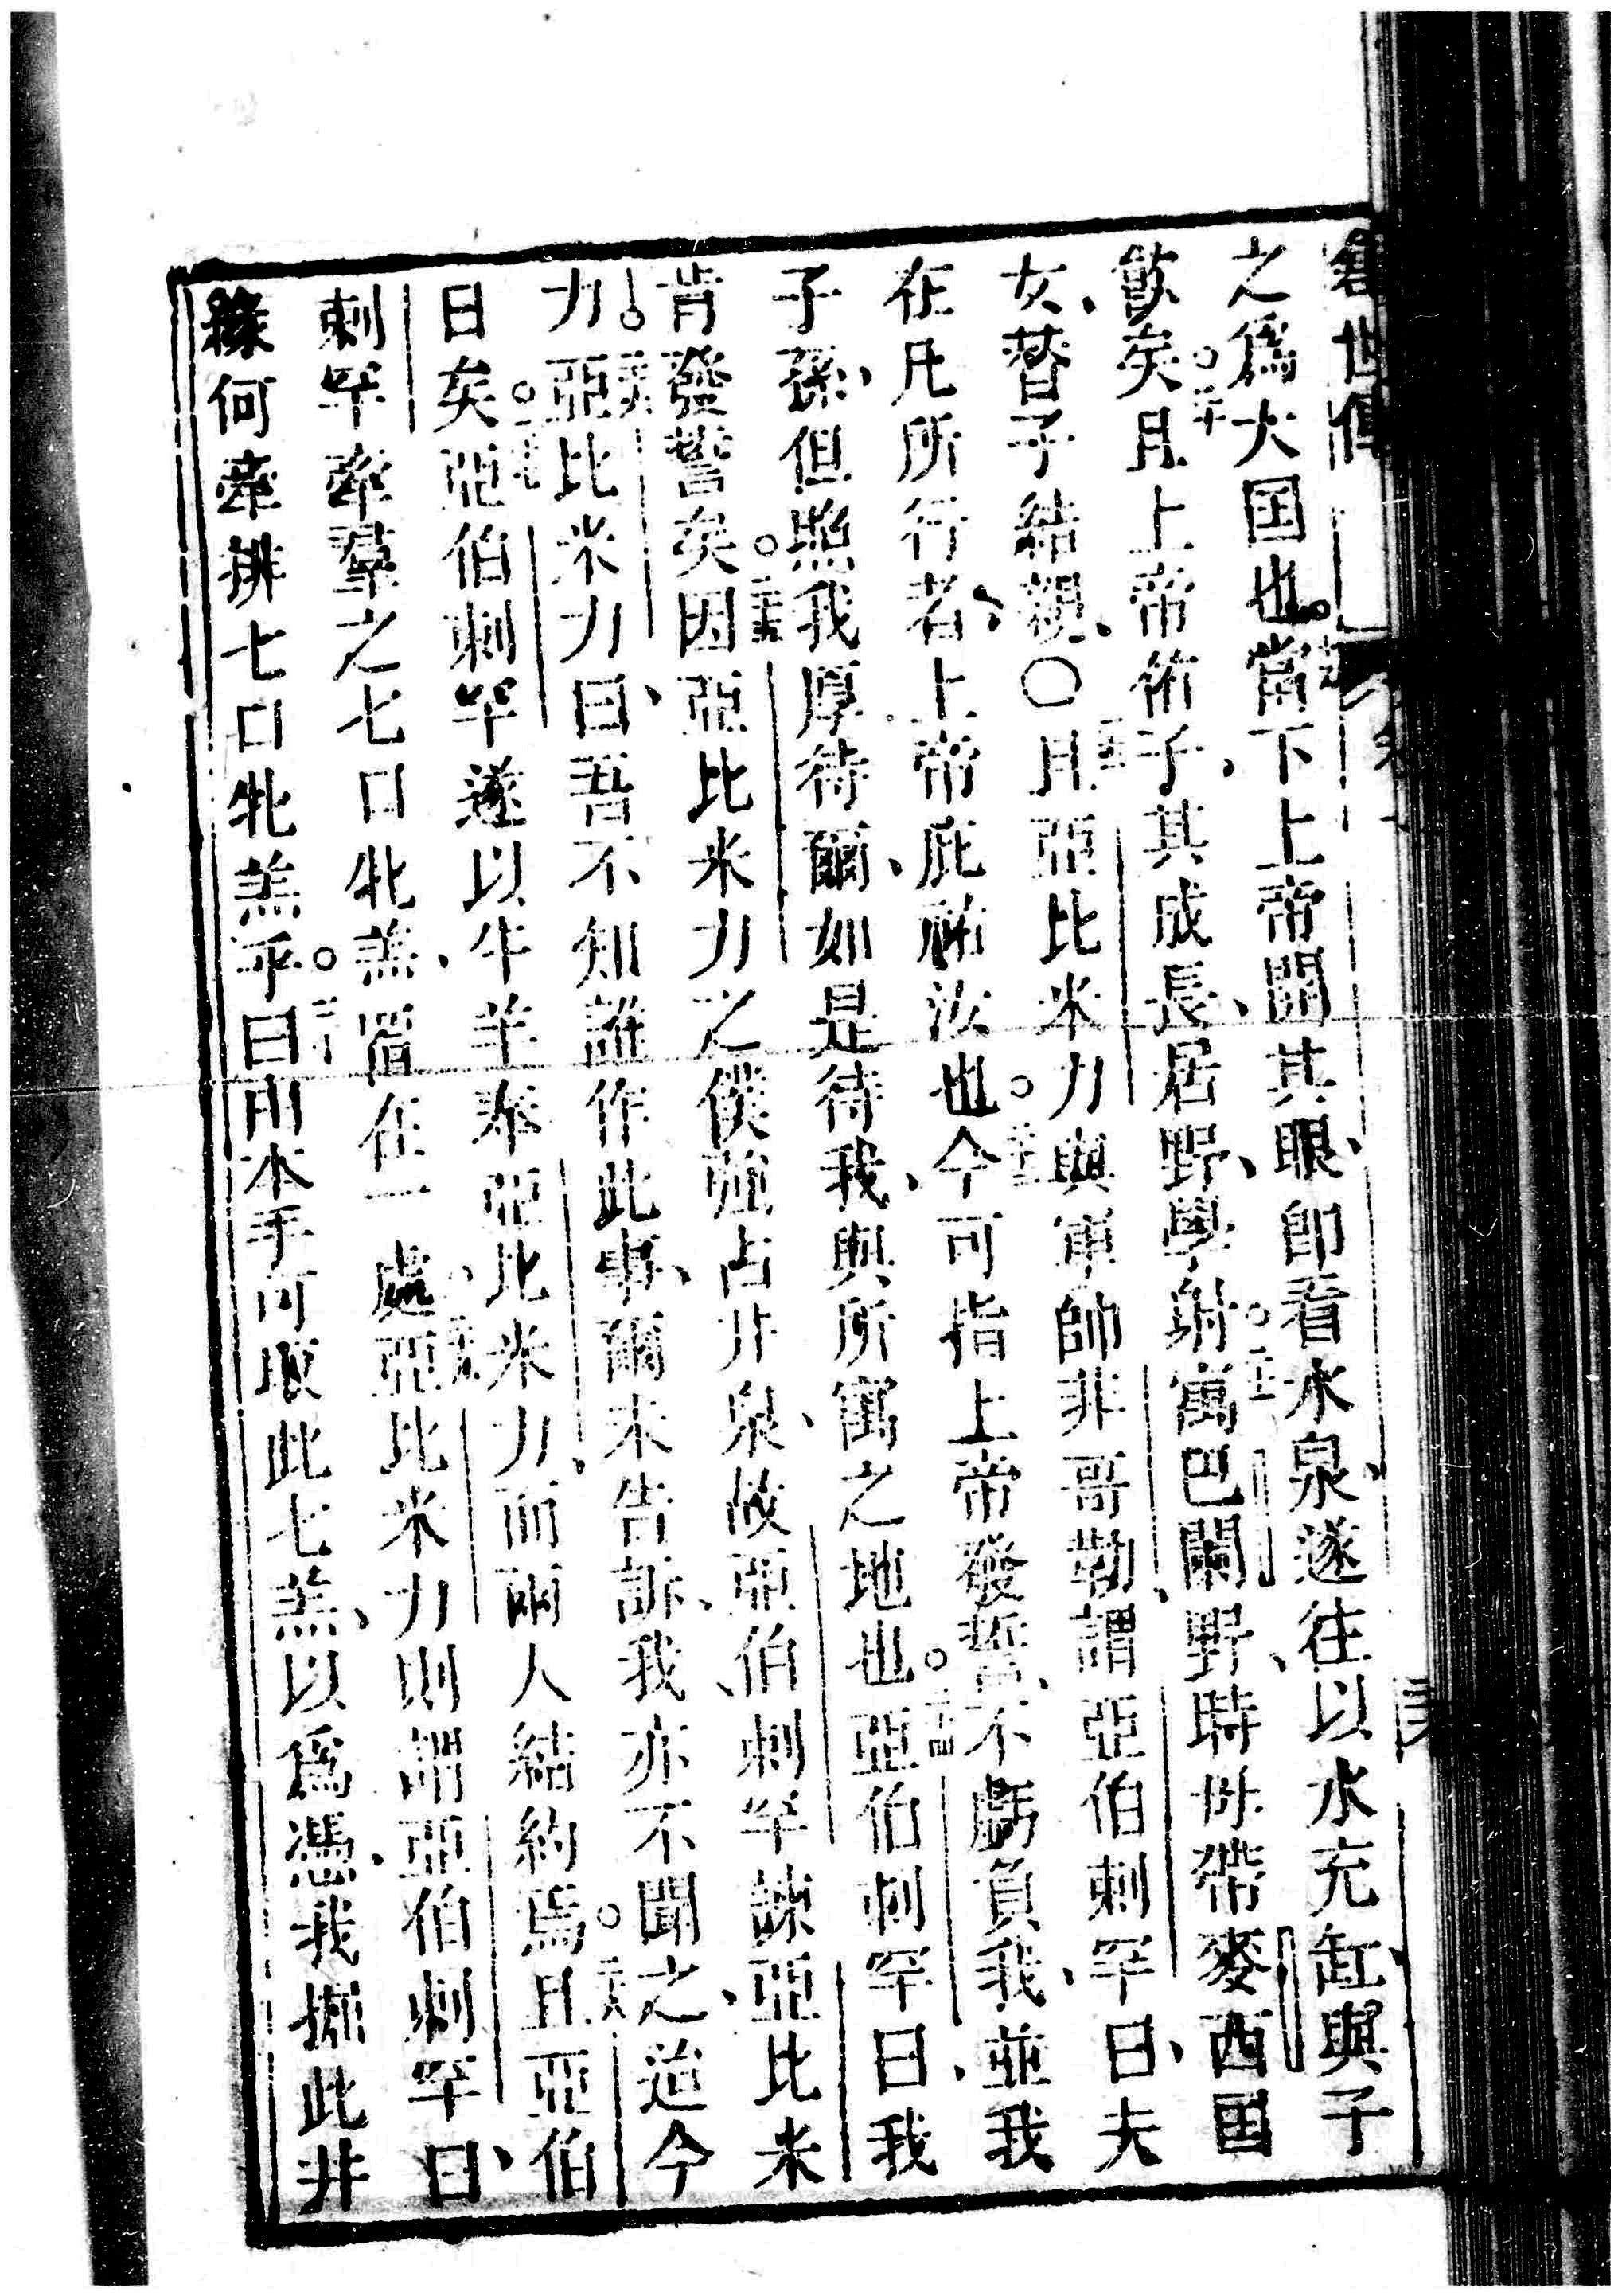 舊世傳
之爲大国也。當下上帝開其眼、卽看水泉、遂往以水充缸、與子
飮矣。且上帝佑子、其成長、居野、學射。寓巴闌野、時母帶麥西国
女、替子結親、〇且亞比米力與軍帥非哥勒、謂亞伯剌罕曰、夫
在凡所行者、上帝庇祐汝也。今可指上帝發誓、不虧負我、並我
子孫、但照我厚待爾、如是待我、與所寓之地也。亞伯剌罕曰、我
肯發誓矣。因亞比米力之僕強占井泉、故亞伯剌罕諫亞比米
力。亞比米力曰、吾不知誰作此事、爾未告訴我、亦不聞之、迨今
日矣。亞伯剌罕遂以牛羊奉亞比米力、而兩人結約焉。且亞伯
剌罕牽羣之七口牝羔、置在一處、亞比米力則謂亞伯剌罕曰、
緣何牽排七口牝羔乎。曰由本手可取此七羔、以爲憑、我掘此井